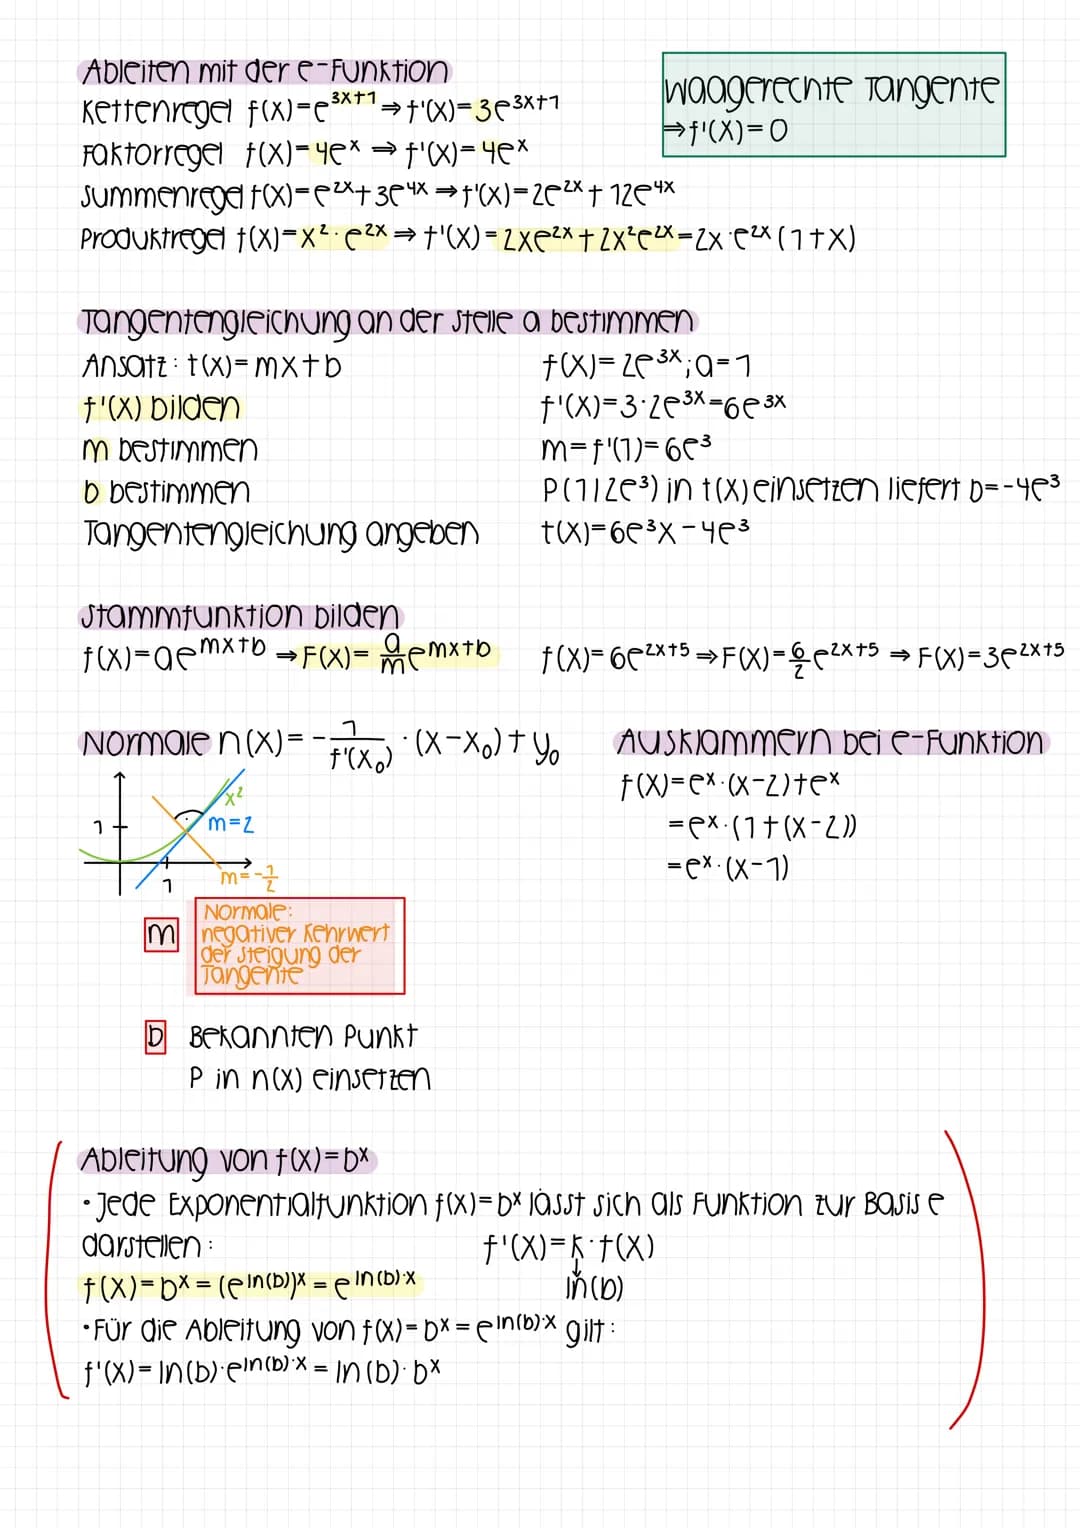 Ableiten mit der e-Funktion
Kettenregel f(x)=e^{3x+1} ⇒ f'(x)=3e^{3x+1}
Faktorregel f(x)=4e^x ⇒ f'(x)=4e^x
Summenregel f(x)=e^{2x}+3e^{4x} ⇒ f'(x)=2e^{2x}+12e^{4x}
Produktregel f(x)=x²·e^{2x} ⇒ f'(x)=2xe^{2x}+2x²e^{2x}=2x·e^{2x}(1+x)
Waagerechte Tangente
⇒f'(x)=0
Tangentengleichung an der Stelle a bestimmen
Ansatz: t(x)=mx+b f(x)=2e^{3x}; a=1
f'(x) bilden f'(x)=3·2e^{3x}=6e^{3x}
m bestimmen m=f'(1)=6e³
b bestimmen P(1|2e³) in t(x) einsetzen liefert b=-4e³
Tangentengleichung angeben t(x)=6e³x-4e³
Stammfunktion bilden
f(x)=ae^{mx+b} ⇒ F(x)=\frac{a}{m}e^{mx+b} f(x)=6e^{2x+5} ⇒ F(x)=\frac{6}{2}e^{2x+5} ⇒ F(x)=3e^{2x+5}
Normale n(x)=-\frac{1}{f'(x₀)}·(x-x₀)+y₀
x²
m=2
1
1
m=-\frac{1}{2}
m
Normale:
negativer Kehrwert
der Steigung der
Tangente
b Bekannten Punkt
P in n(x) einsetzen
Ausklammern bei e-Funktion
f(x)=e^x·(x-2)+e^x
=e^x·(1+(x-2))
=e^x·(x-1)
Ableitung von f(x)=b^x
• Jede Exponentialfunktion f(x)=b^x lässt sich als Funktion zur Basis e
darstellen: f'(x)=k·f(x)
↓
f(x)=b^x=(e^{ln(b)})^x=e^{ln(b)·x} ln(b)
• Für die Ableitung von f(x)=b^x=e^{ln(b)·x} gilt:
f'(x)=ln(b)·e^{ln(b)·x}=ln(b)·b^x